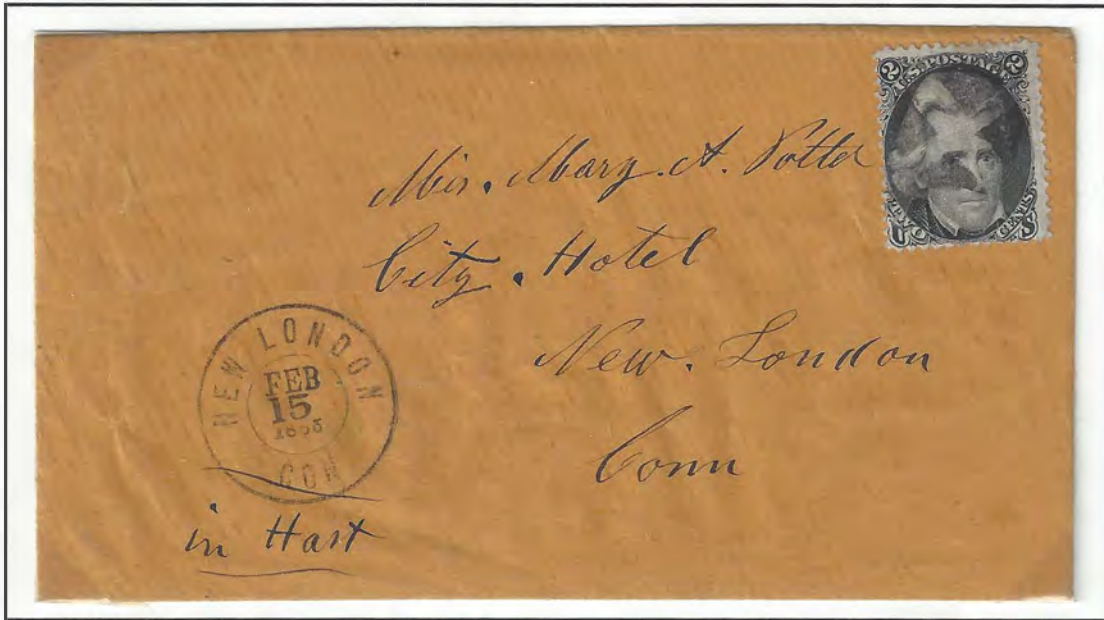 2 U.S. POSTAGE 2
TWO CENTS
U S
Mis. Mary. A. Potter
City. Hotel
New. London
Conn
NEW LONDON
FEB
15
CON
in Hast